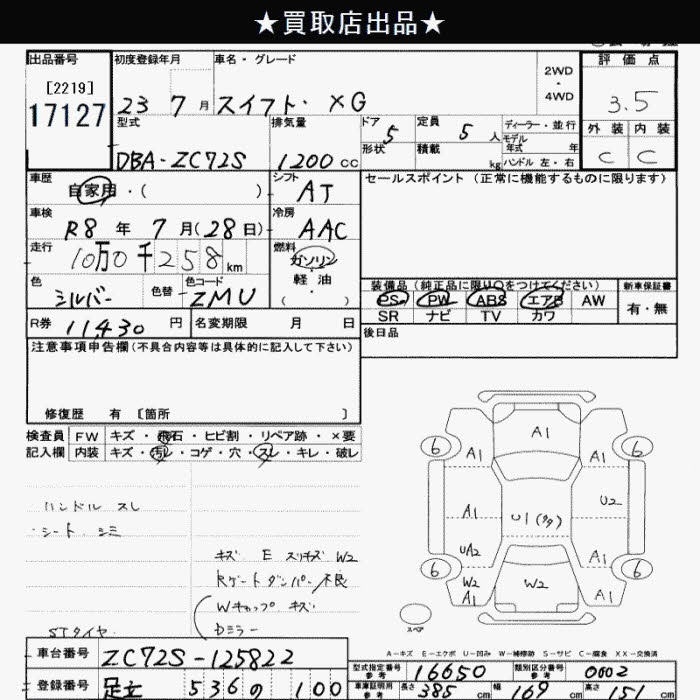 ★買取店出品★
出品番号 初度登録年月 車名・グレード 2WD・4WD 評価点
[2219]
17127 23 7月 スイフト・XG 3.5
型式 排気量 ドア 5 定員 5人 ディーラー・並行 外装 内装
形状 積載 kg モデル年式 年 ハンドル 左・右
DBA-ZC72S 1200cc C C
車歴 自家用・( ) シフト AT セールスポイント(正常に機能するものに限ります)
車検 R8年 7月(28日) 冷房 AAC
走行 10万0千258km 燃料 ガソリン・軽油・
色 シルバー 色替 色コード ZMU
装備品(純正品に限り○をつけてください) 新車保証書
PS PW ABS エアB AW 有・無
SR ナビ TV カワ
R券 11430円 名変期限 月 日 後日品
注意事項申告欄(不具合内容等は具体的に記入して下さい)
修復歴 有 [箇所 ]
検査員 FW キズ・飛石・ヒビ割・リペア跡・×要
記入欄 内装 キズ・汚レ・コゲ・穴・スレ・キレ・破レ
ハンドル スレ
・シート シミ
キズ E スリキズ W2
Rゲートダンパー不良
Wキャップ キズ
Dミラー
STタイヤ
A1
6 A1 A1 6
A1 U1(多) U2
UA2
6 A1 6
W2 A1 W2 A1
スペア
A-キズ E-エクボ U-凹み W-補修跡 S-サビ C-腐食 XX-交換済
車台番号 ZC72S-125822 型式指定番号 参考 16650 類別区分番号 参考 0002
登録番号 足立 536 の 100 車庫証明用 参考 長さ 385cm 幅 169cm 高さ 151cm